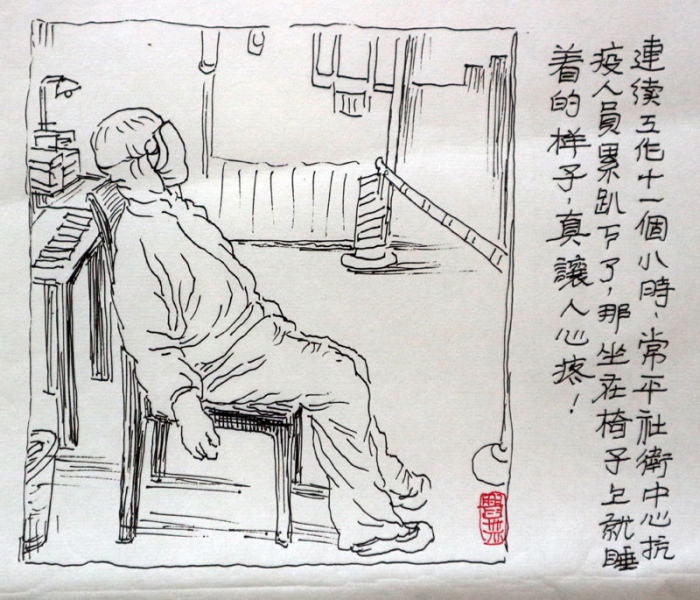 連續工作十一個小時、常平社衛中心抗
疫人員累趴下了，那坐在椅子上就睡
着的样子，真讓人心疼！